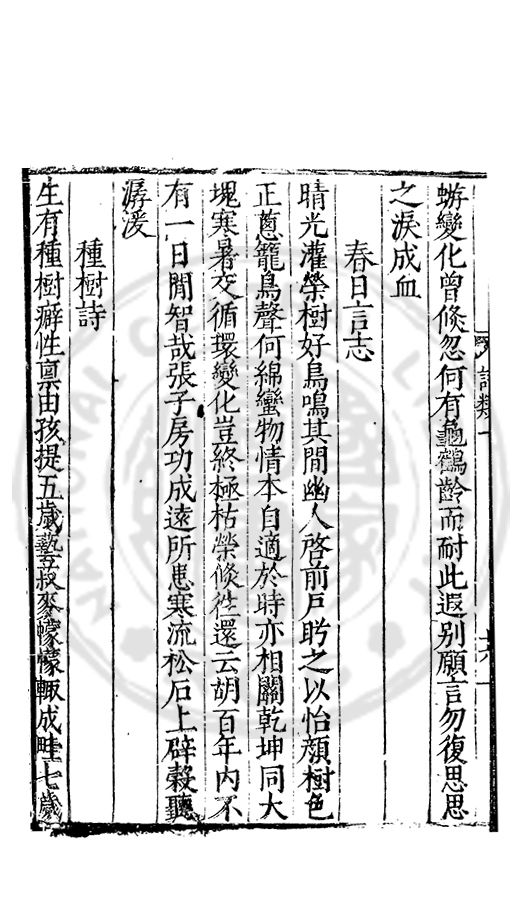 詩類
蝣變化曾倏忽何有龜鶴齡而耐此遐别願言勿復思思
之淚成血
春日言志
晴光灌榮樹好鳥鳴其間幽人啓前戶眄之以怡顏樹色
正蔥籠鳥聲何綿蠻物情本自適於時亦相關乾坤同大
塊寒暑交循環變化豈終極枯榮倏徃還云胡百年内不
有一日閒智哉張子房功成遠所患寒流松石上辟穀聽
潺湲
種樹詩
生有種樹癖性禀由孩提五歲藝菽麥幪幪輒成畦七歲